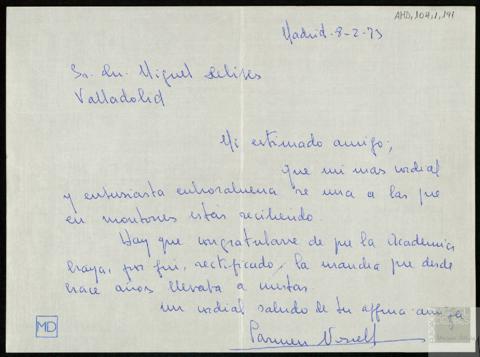 AMD,104,1,141
Madrid-8-2-73
Sr. Dn. Miguel Delibes
Valladolid
Mi estimado amigo;
que mi mas cordial
y entusiasta enhorabuena se una a las que
en montones estás recibiendo.
Hay que congratularse de que la Academia
haya, por fin, rectificado, la marcha que desde
hace años llevaba a cuestas.
un cordial saludo de tu affma. amiga
Carmen
MD